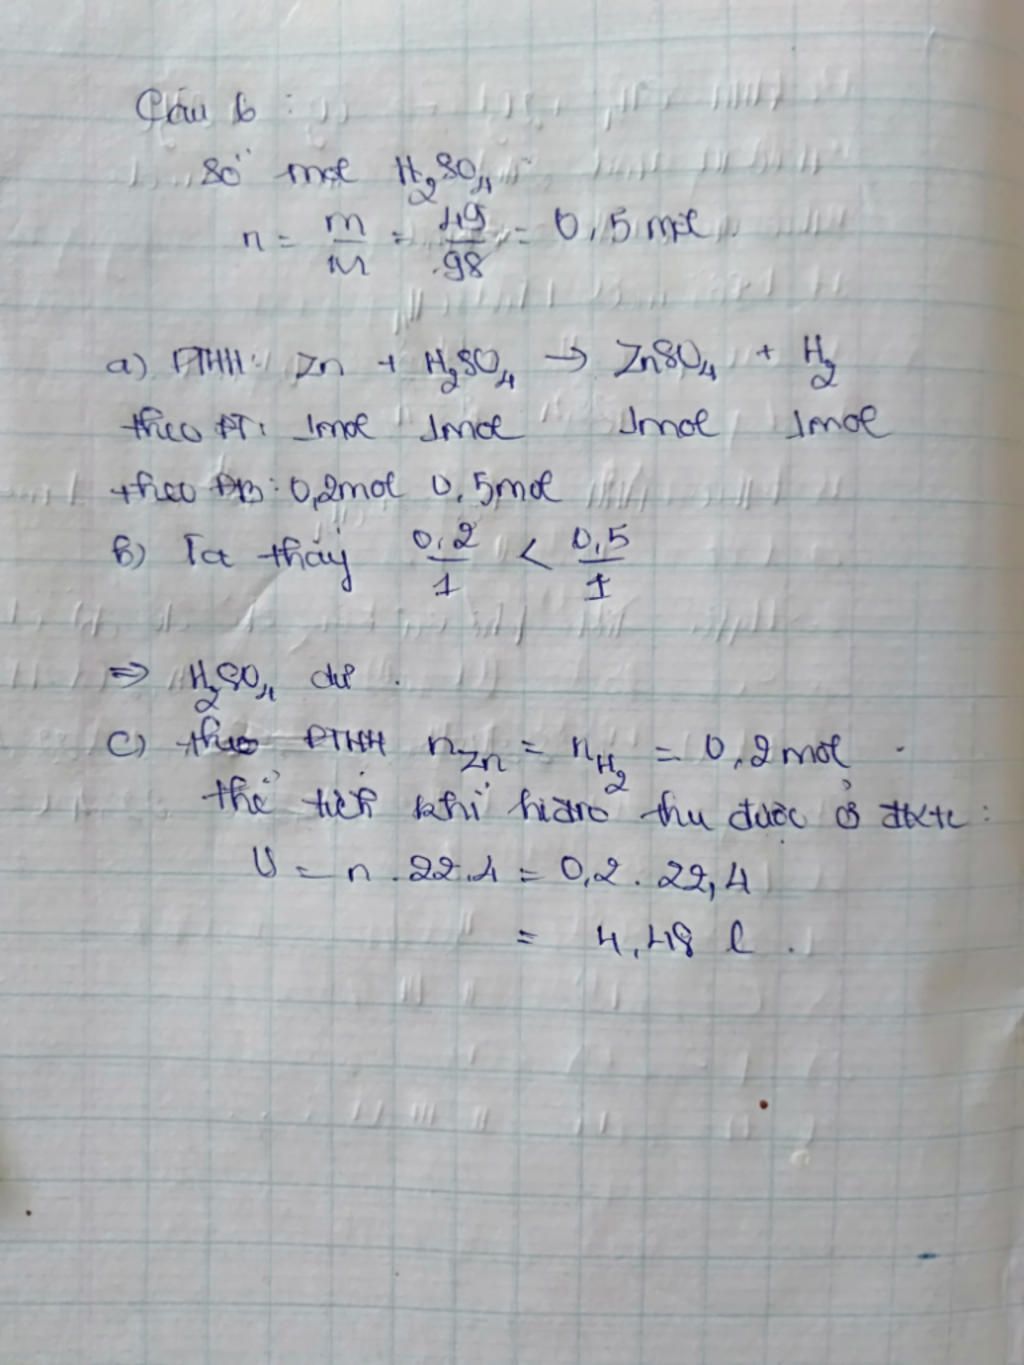 Câu 6 :
Số mol H₂SO₄
n = m/M = 49/98 = 0,5 mol
a) PTHH: Zn + H₂SO₄ → ZnSO₄ + H₂
theo PT: 1mol 1mol 1mol 1mol
theo ĐB: 0,2mol 0,5mol
b) Ta thấy 0,2/1 < 0,5/1
⇒ H₂SO₄ dư .
c) theo PTHH nZn = nH₂ = 0,2mol .
thể tích khí hiđro thu được ở đktc :
V = n . 22.4 = 0,2 . 22,4
= 4,48 l .